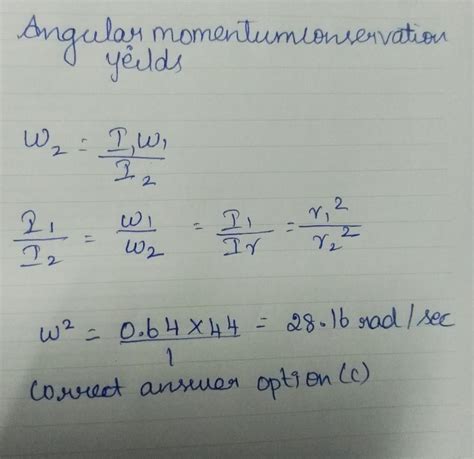 Angular momentum conservation
yeilds
W₂ = I₁W₁ / I₂
I₁/I₂ = ω₁/ω₂ = I₁/Ir = r₁²/r₂²
ω² = 0.64×44 / 1 = 28.16 rad/sec
Correct answer option (c)